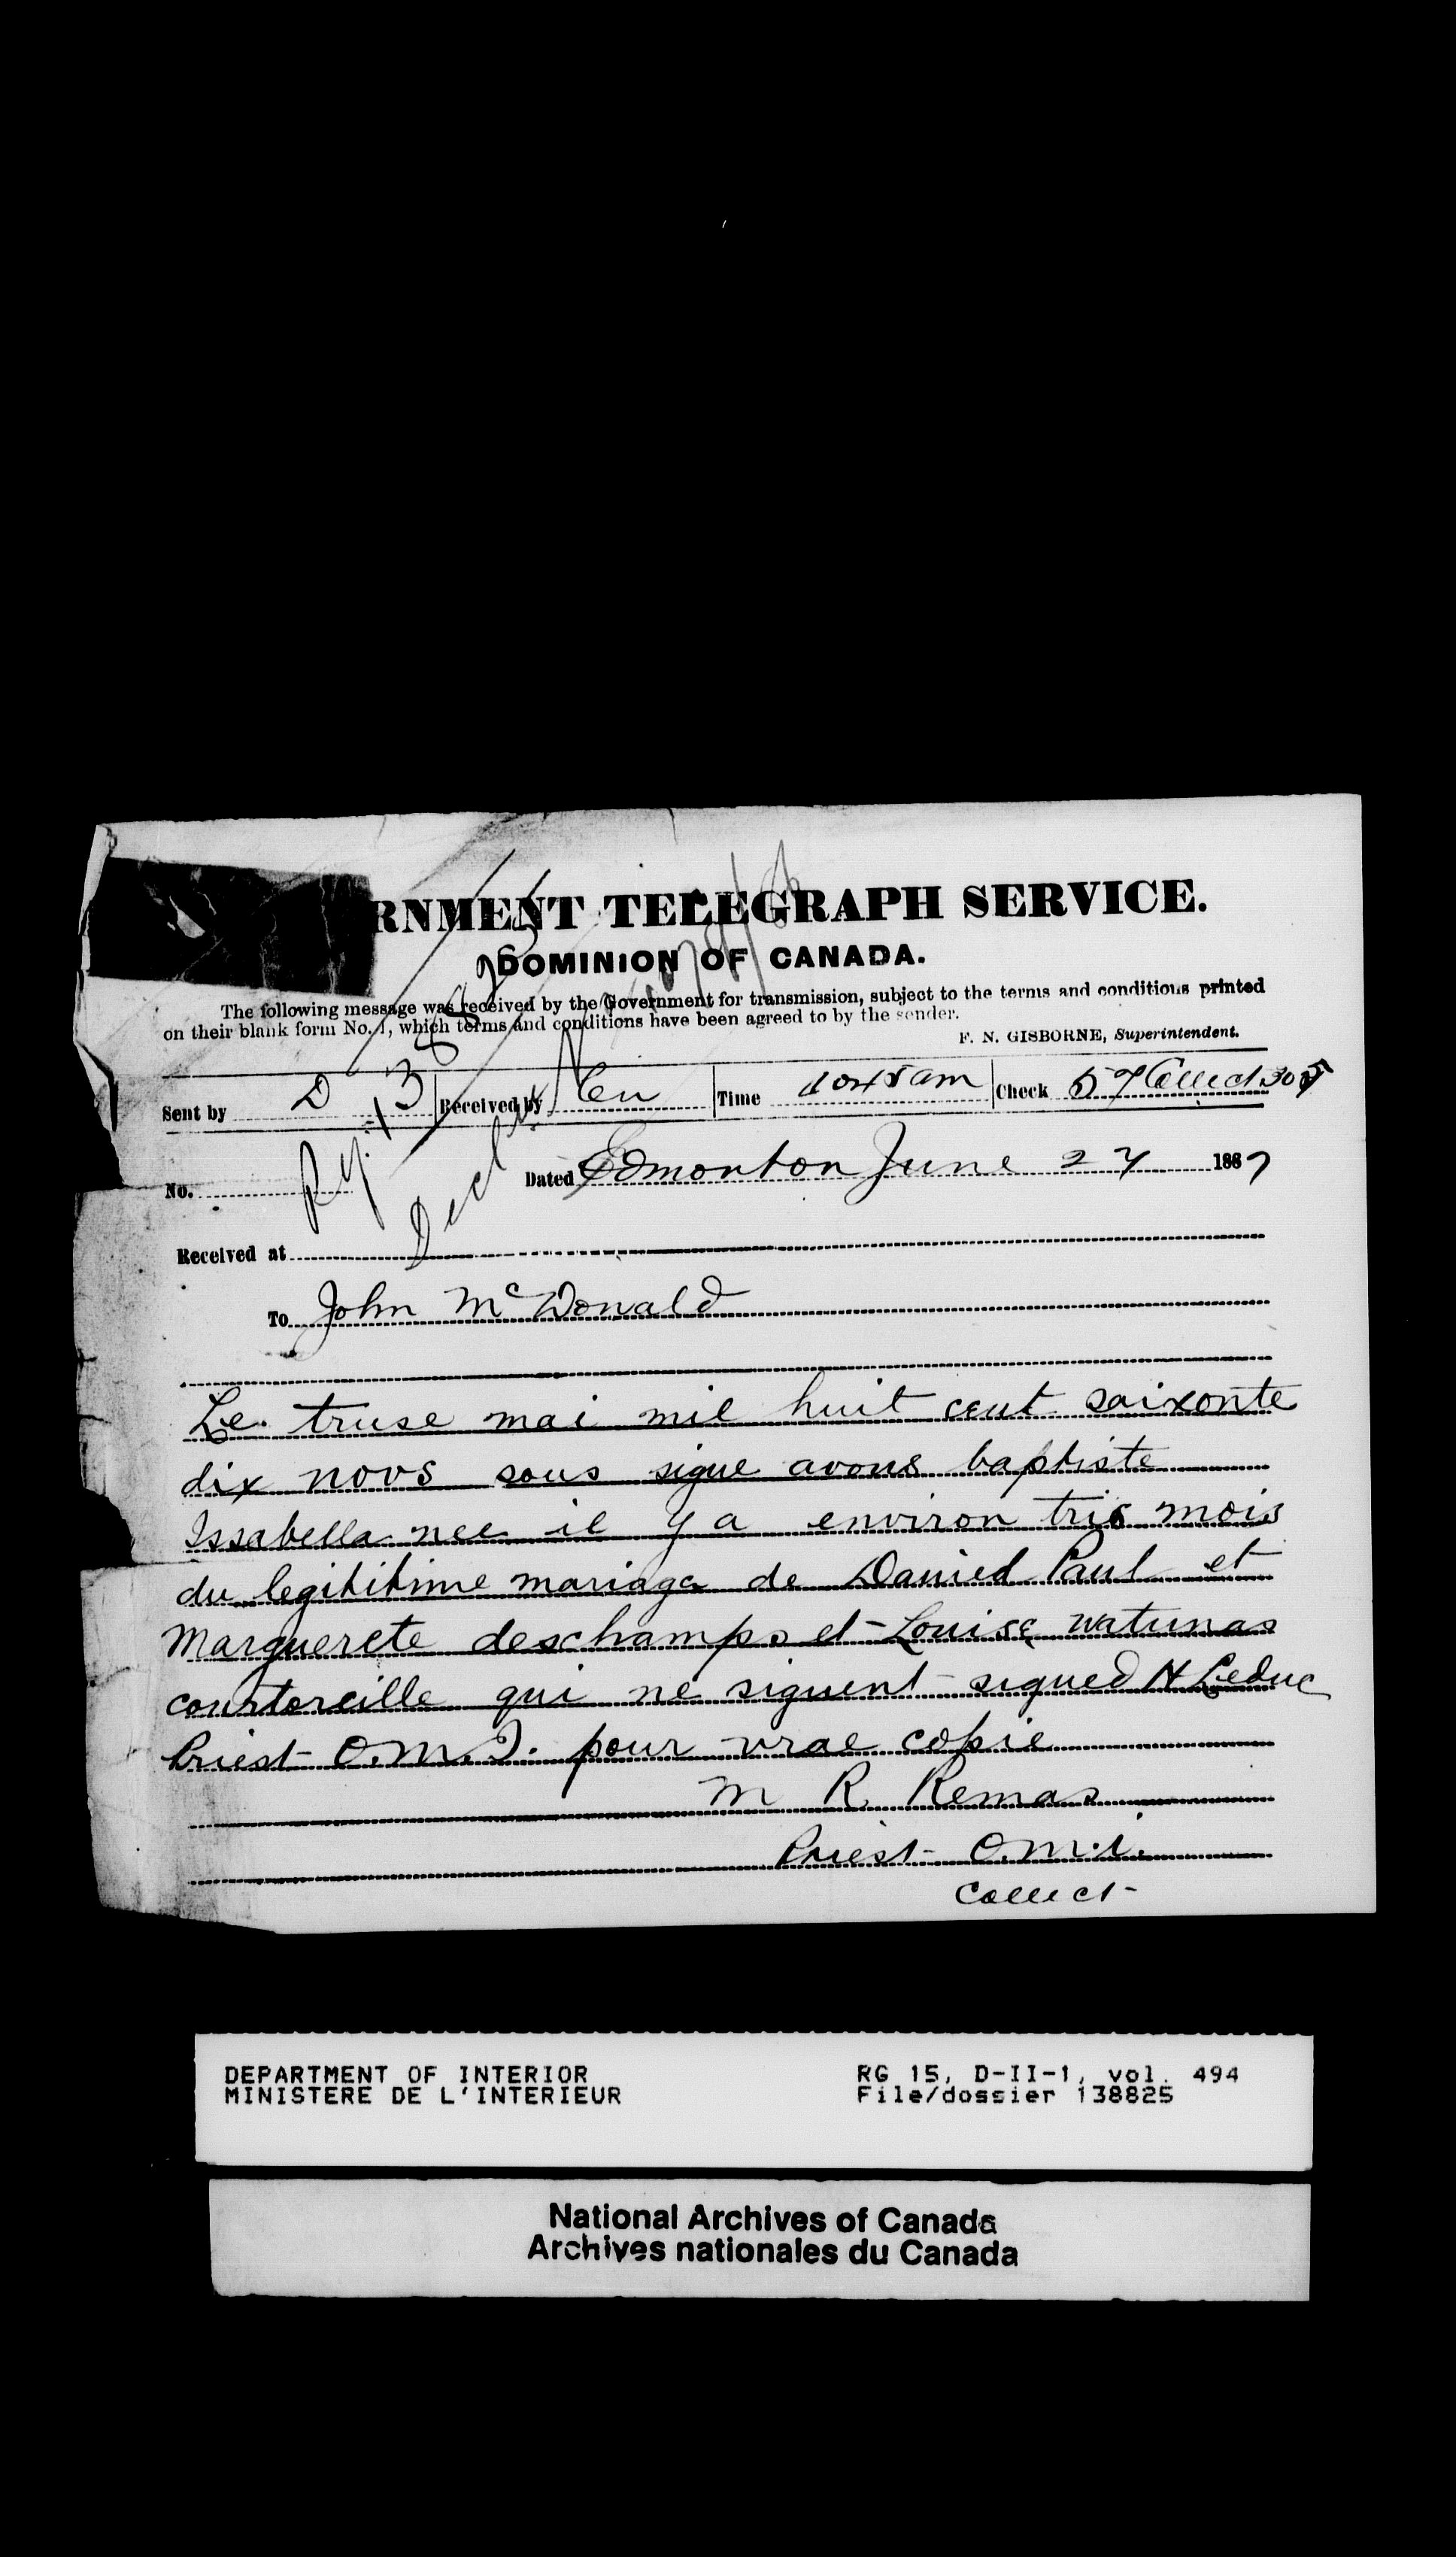 RNMENT TELEGRAPH SERVICE.
DOMINION OF CANADA.
The following message was received by the Government for transmission, subject to the terms and conditions printed
on their blank form No. 1, which terms and conditions have been agreed to by the sender.
F. N. GISBORNE, Superintendent.
Sent by D Received by Time 1045 am Check 57 Collect
No. Dated Edmonton June 27 1887
Received at
To John McDonald
Le truse mai mil huit cent soixonte
dix novs sous signe avons baptiste
Issabella nee il y a environ tris mois
du legibitime mariaga de Daniel Paul et
Marguerete deschamps et Louise watunas
courtoreille qui ne siguent signed H Leduc
Priest O.M.I. pour vrae copie
M R Remas
Priest O.M.I.
Collect
DEPARTMENT OF INTERIOR RG 15, D-II-1, vol. 494
MINISTERE DE L'INTERIEUR File/dossier 138825
National Archives of Canada
Archives nationales du Canada